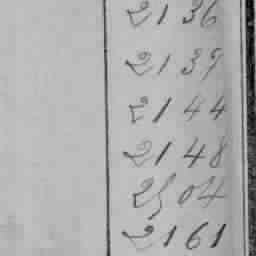 2136
2139
2144
2148
2504
2161